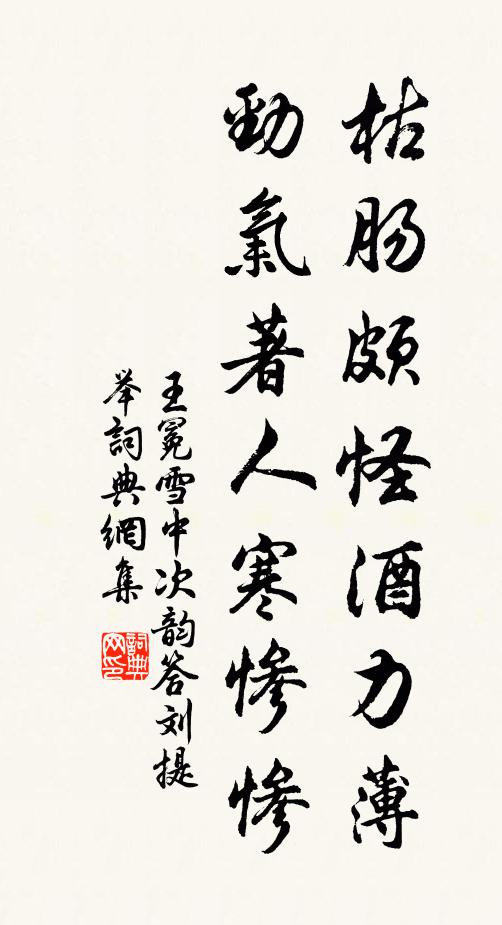 枯肠颇怪酒力薄
勁氣著人寒惨惨
王冕雪中次韵答刘提
举詞典網集
詞典网印